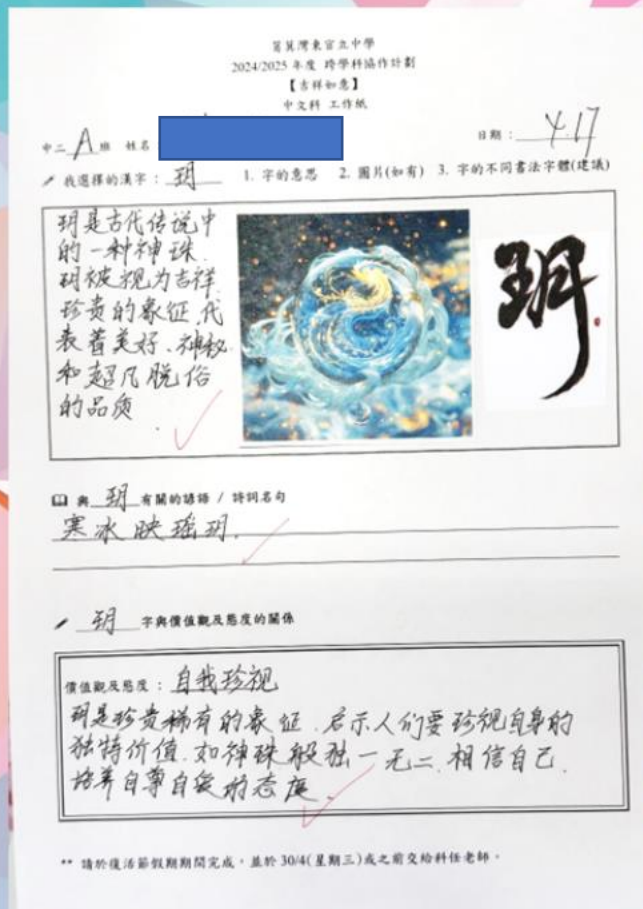 筲箕灣東官立中學
2024/2025 年度 跨學科協作計劃
【吉祥如意】
中文科 工作紙
中二 A 班 姓名
日期： 4.17
我選擇的漢字：玥 1. 字的意思 2. 圖片(如有) 3. 字的不同書法字體(建議)
玥是古代传说中
的一种神珠.
玥被视为吉祥.
珍贵的象征,代
表着美好、神秘
和超凡脱俗
的品质.
玥
與 玥 有關的諺語 / 詩詞名句
寒冰映瑶玥.
玥 字與價值觀及態度的關係
價值觀及態度：自我珍视
玥是珍贵稀有的象征.启示人们要珍视自身的
独特价值.如神珠般独一无二.相信自己.
培养自尊自爱的态度.
** 請於復活節假期期間完成，並於 30/4(星期三)或之前交給科任老師。